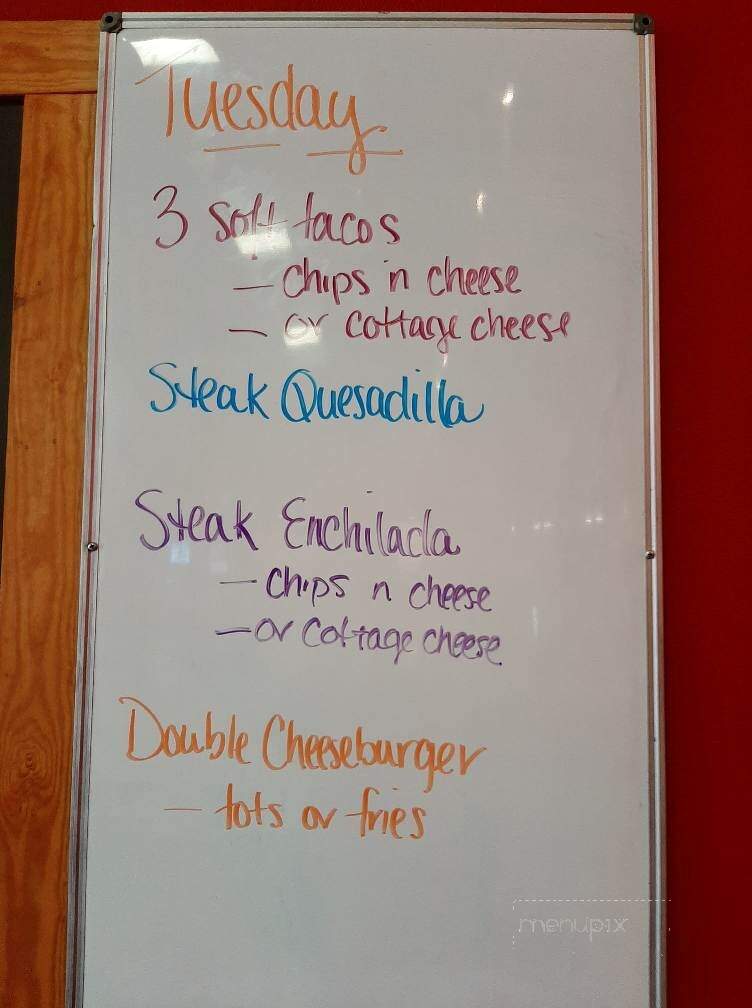 Tuesday
3 soft tacos
- chips n cheese
- or cottage cheese
Steak Quesadilla
Steak Enchilada
- chips n cheese
- or cottage cheese
Double Cheeseburger
- tots or fries
menupix